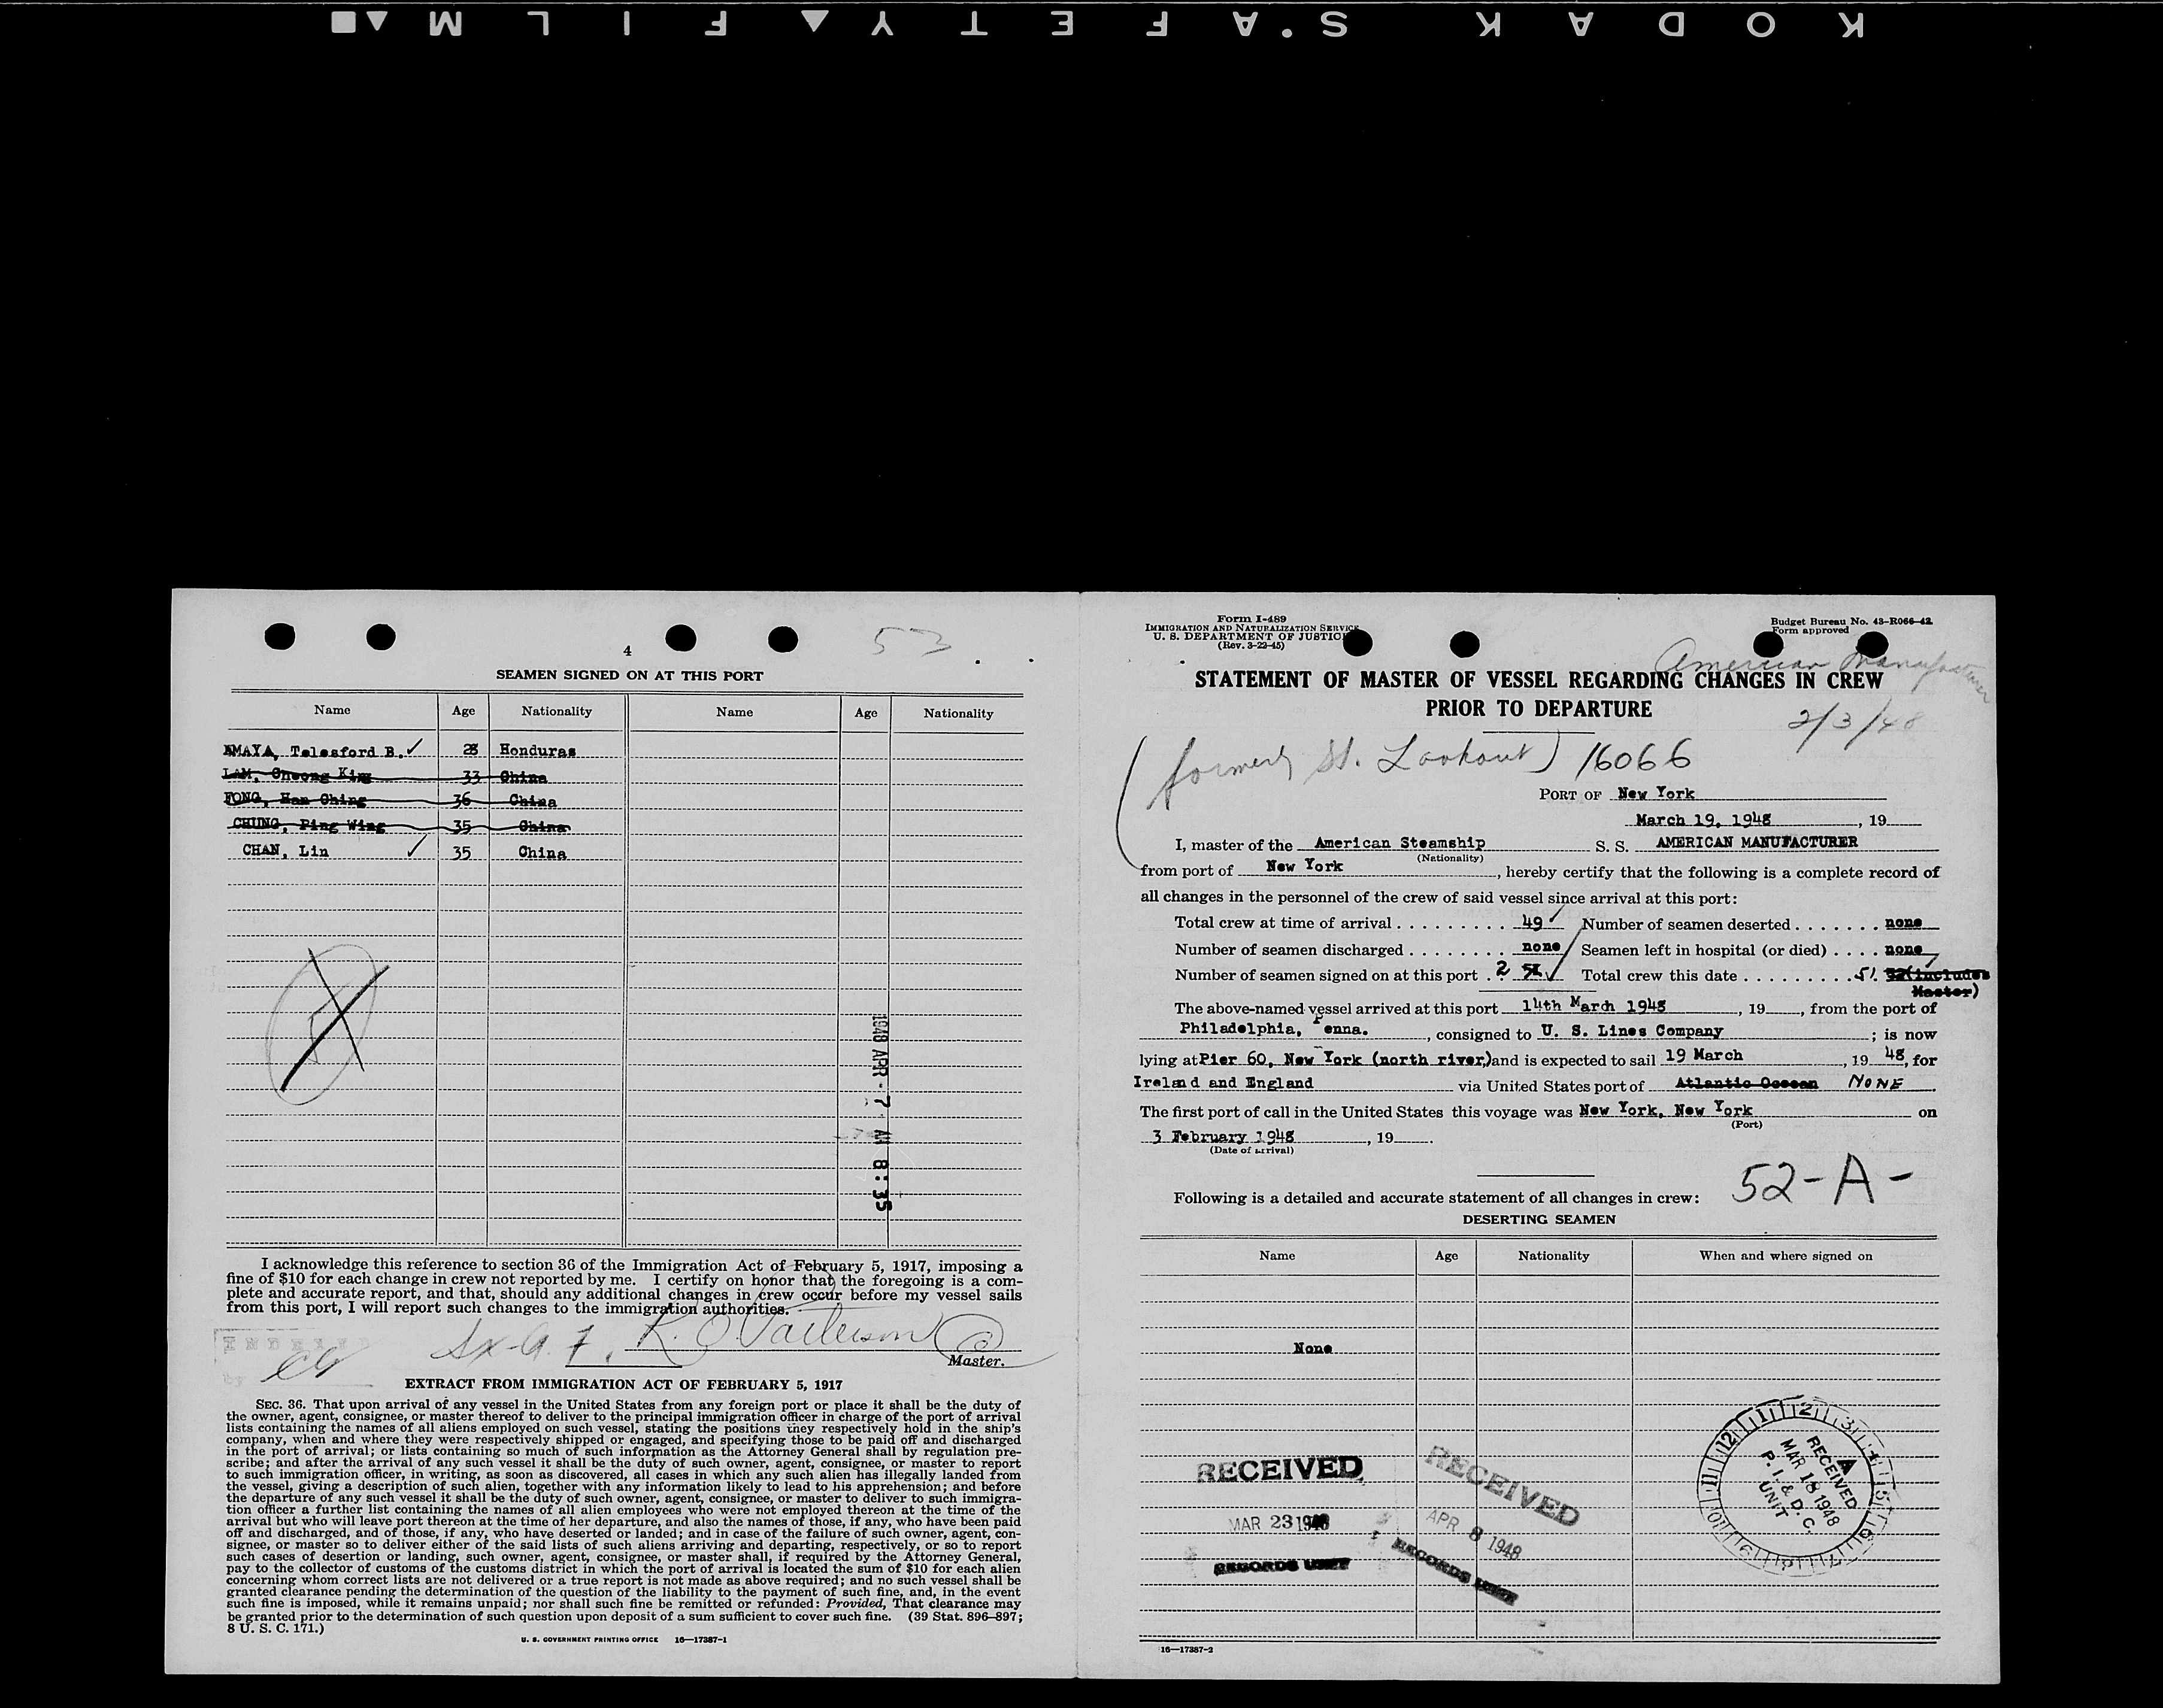 KODAK SAFETY FILM
4
53
SEAMEN SIGNED ON AT THIS PORT
Name Age Nationality Name Age Nationality
AMAYA, Telesford B. ✓ 28 Honduras
LAM, Cheong King 33 China
FONG, Han Ching 36 China
CHUNG, Ping Wing 35 China
CHAN, Lin ✓ 35 China
1948 APR -7 AM 8:35
I acknowledge this reference to section 36 of the Immigration Act of February 5, 1917, imposing a
fine of $10 for each change in crew not reported by me. I certify on honor that the foregoing is a com-
plete and accurate report, and that, should any additional changes in crew occur before my vessel sails
from this port, I will report such changes to the immigration authorities.
INDEXED
Master.
EXTRACT FROM IMMIGRATION ACT OF FEBRUARY 5, 1917
SEC. 36. That upon arrival of any vessel in the United States from any foreign port or place it shall be the duty of
the owner, agent, consignee, or master thereof to deliver to the principal immigration officer in charge of the port of arrival
lists containing the names of all aliens employed on such vessel, stating the positions they respectively hold in the ship's
company, when and where they were respectively shipped or engaged, and specifying those to be paid off and discharged
in the port of arrival; or lists containing so much of such information as the Attorney General shall by regulation pre-
scribe; and after the arrival of any such vessel it shall be the duty of such owner, agent, consignee, or master to report
to such immigration officer, in writing, as soon as discovered, all cases in which any such alien has illegally landed from
the vessel, giving a description of such alien, together with any information likely to lead to his apprehension; and before
the departure of any such vessel it shall be the duty of such owner, agent, consignee, or master to deliver to such immigra-
tion officer a further list containing the names of all alien employees who were not employed thereon at the time of the
arrival but who will leave port thereon at the time of her departure, and also the names of those, if any, who have been paid
off and discharged, and of those, if any, who have deserted or landed; and in case of the failure of such owner, agent, con-
signee, or master so to deliver either of the said lists of such aliens arriving and departing, respectively, or so to report
such cases of desertion or landing, such owner, agent, consignee, or master shall, if required by the Attorney General,
pay to the collector of customs of the customs district in which the port of arrival is located the sum of $10 for each alien
concerning whom correct lists are not delivered or a true report is not made as above required; and no such vessel shall be
granted clearance pending the determination of the question of the liability to the payment of such fine, and, in the event
such fine is imposed, while it remains unpaid; nor shall such fine be remitted or refunded: Provided, That clearance may
be granted prior to the determination of such question upon deposit of a sum sufficient to cover such fine. (39 Stat. 896–897;
8 U. S. C. 171.)
U. S. GOVERNMENT PRINTING OFFICE 16—17387-1
Form I-489
IMMIGRATION AND NATURALIZATION SERVICE
U. S. DEPARTMENT OF JUSTICE
(Rev. 3-22-45)
Budget Bureau No. 43-R066-42
Form approved
American Manufacturer
STATEMENT OF MASTER OF VESSEL REGARDING CHANGES IN CREW
PRIOR TO DEPARTURE
2/3/48
(formerly St. Lookout) 16066
PORT OF New York
March 19, 1948, 19
I, master of the American Steamship S. S. AMERICAN MANUFACTURER
(Nationality)
from port of New York, hereby certify that the following is a complete record of
all changes in the personnel of the crew of said vessel since arrival at this port:
Total crew at time of arrival 49 ✓ Number of seamen deserted none
Number of seamen discharged none Seamen left in hospital (or died) none
Number of seamen signed on at this port 2 ✓ Total crew this date 51 52(includes
Master)
The above-named vessel arrived at this port 14th March 1948, 19, from the port of
Philadelphia, Penna., consigned to U. S. Lines Company; is now
lying at Pier 60, New York (north river) and is expected to sail 19 March, 19 48, for
Ireland and England via United States port of Atlantic Ocean NONE
The first port of call in the United States this voyage was New York, New York on
(Port)
3 February 1948, 19.
(Date of arrival)
52-A-
Following is a detailed and accurate statement of all changes in crew:
DESERTING SEAMEN
Name Age Nationality When and where signed on
None
RECEIVED
MAR 23 1948
RECORDS UNIT
RECEIVED
APR 8 1948
RECORDS UNIT
RECEIVED
MAR 18 1948
P. I. & D. C.
UNIT
16—17387-2